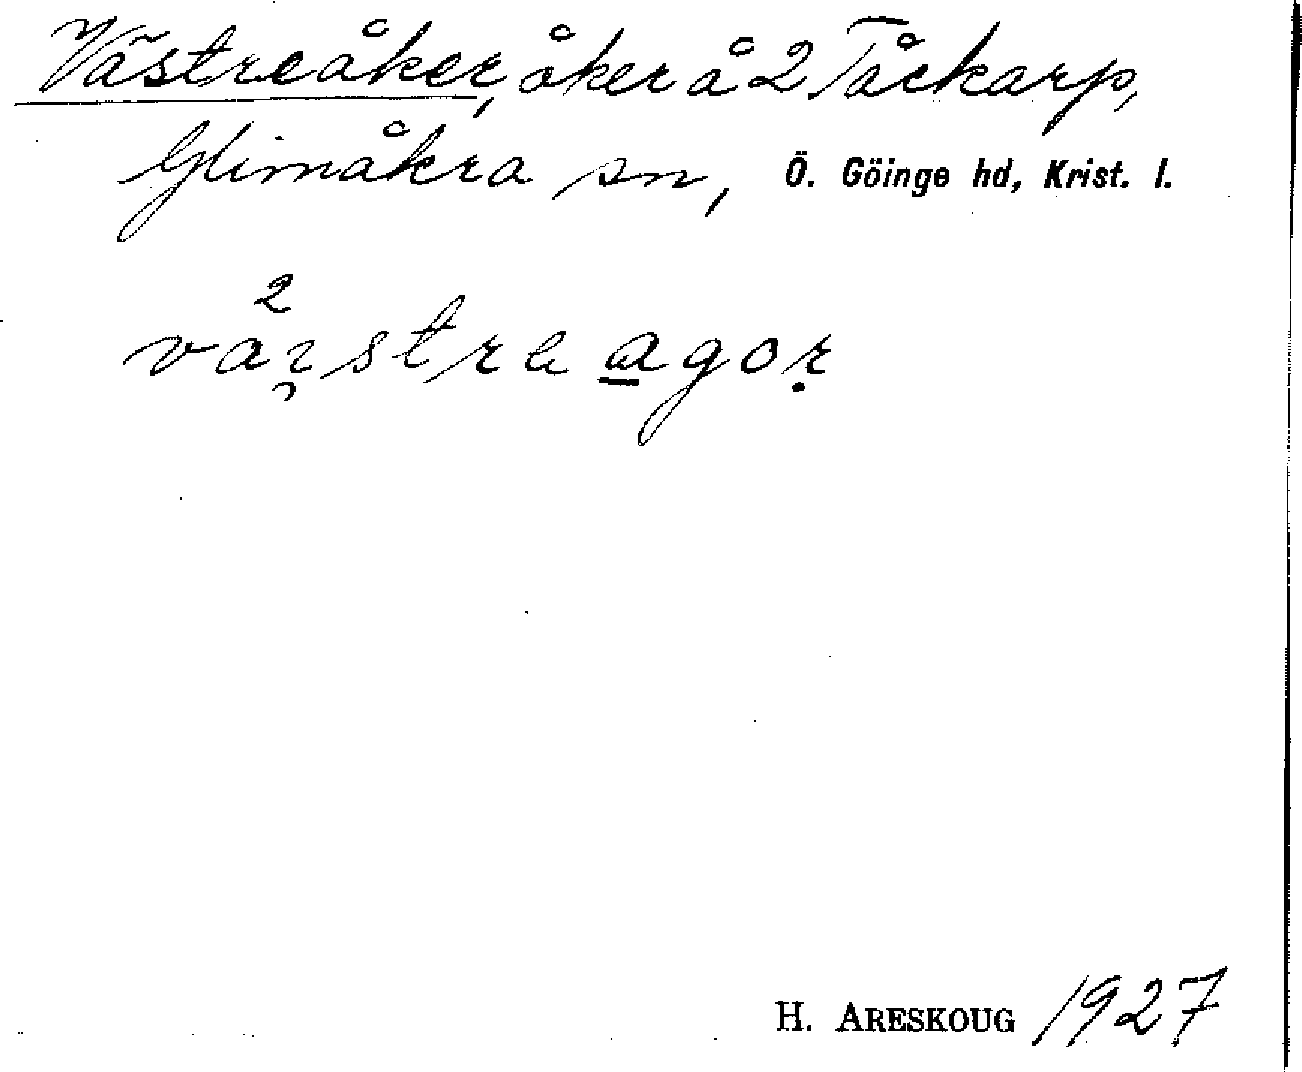 Västreåker, åker å 2 Tåckarp,
Glimåkra sn, Ö. Göinge hd, Krist. l.
H. ARESKOUG 1927